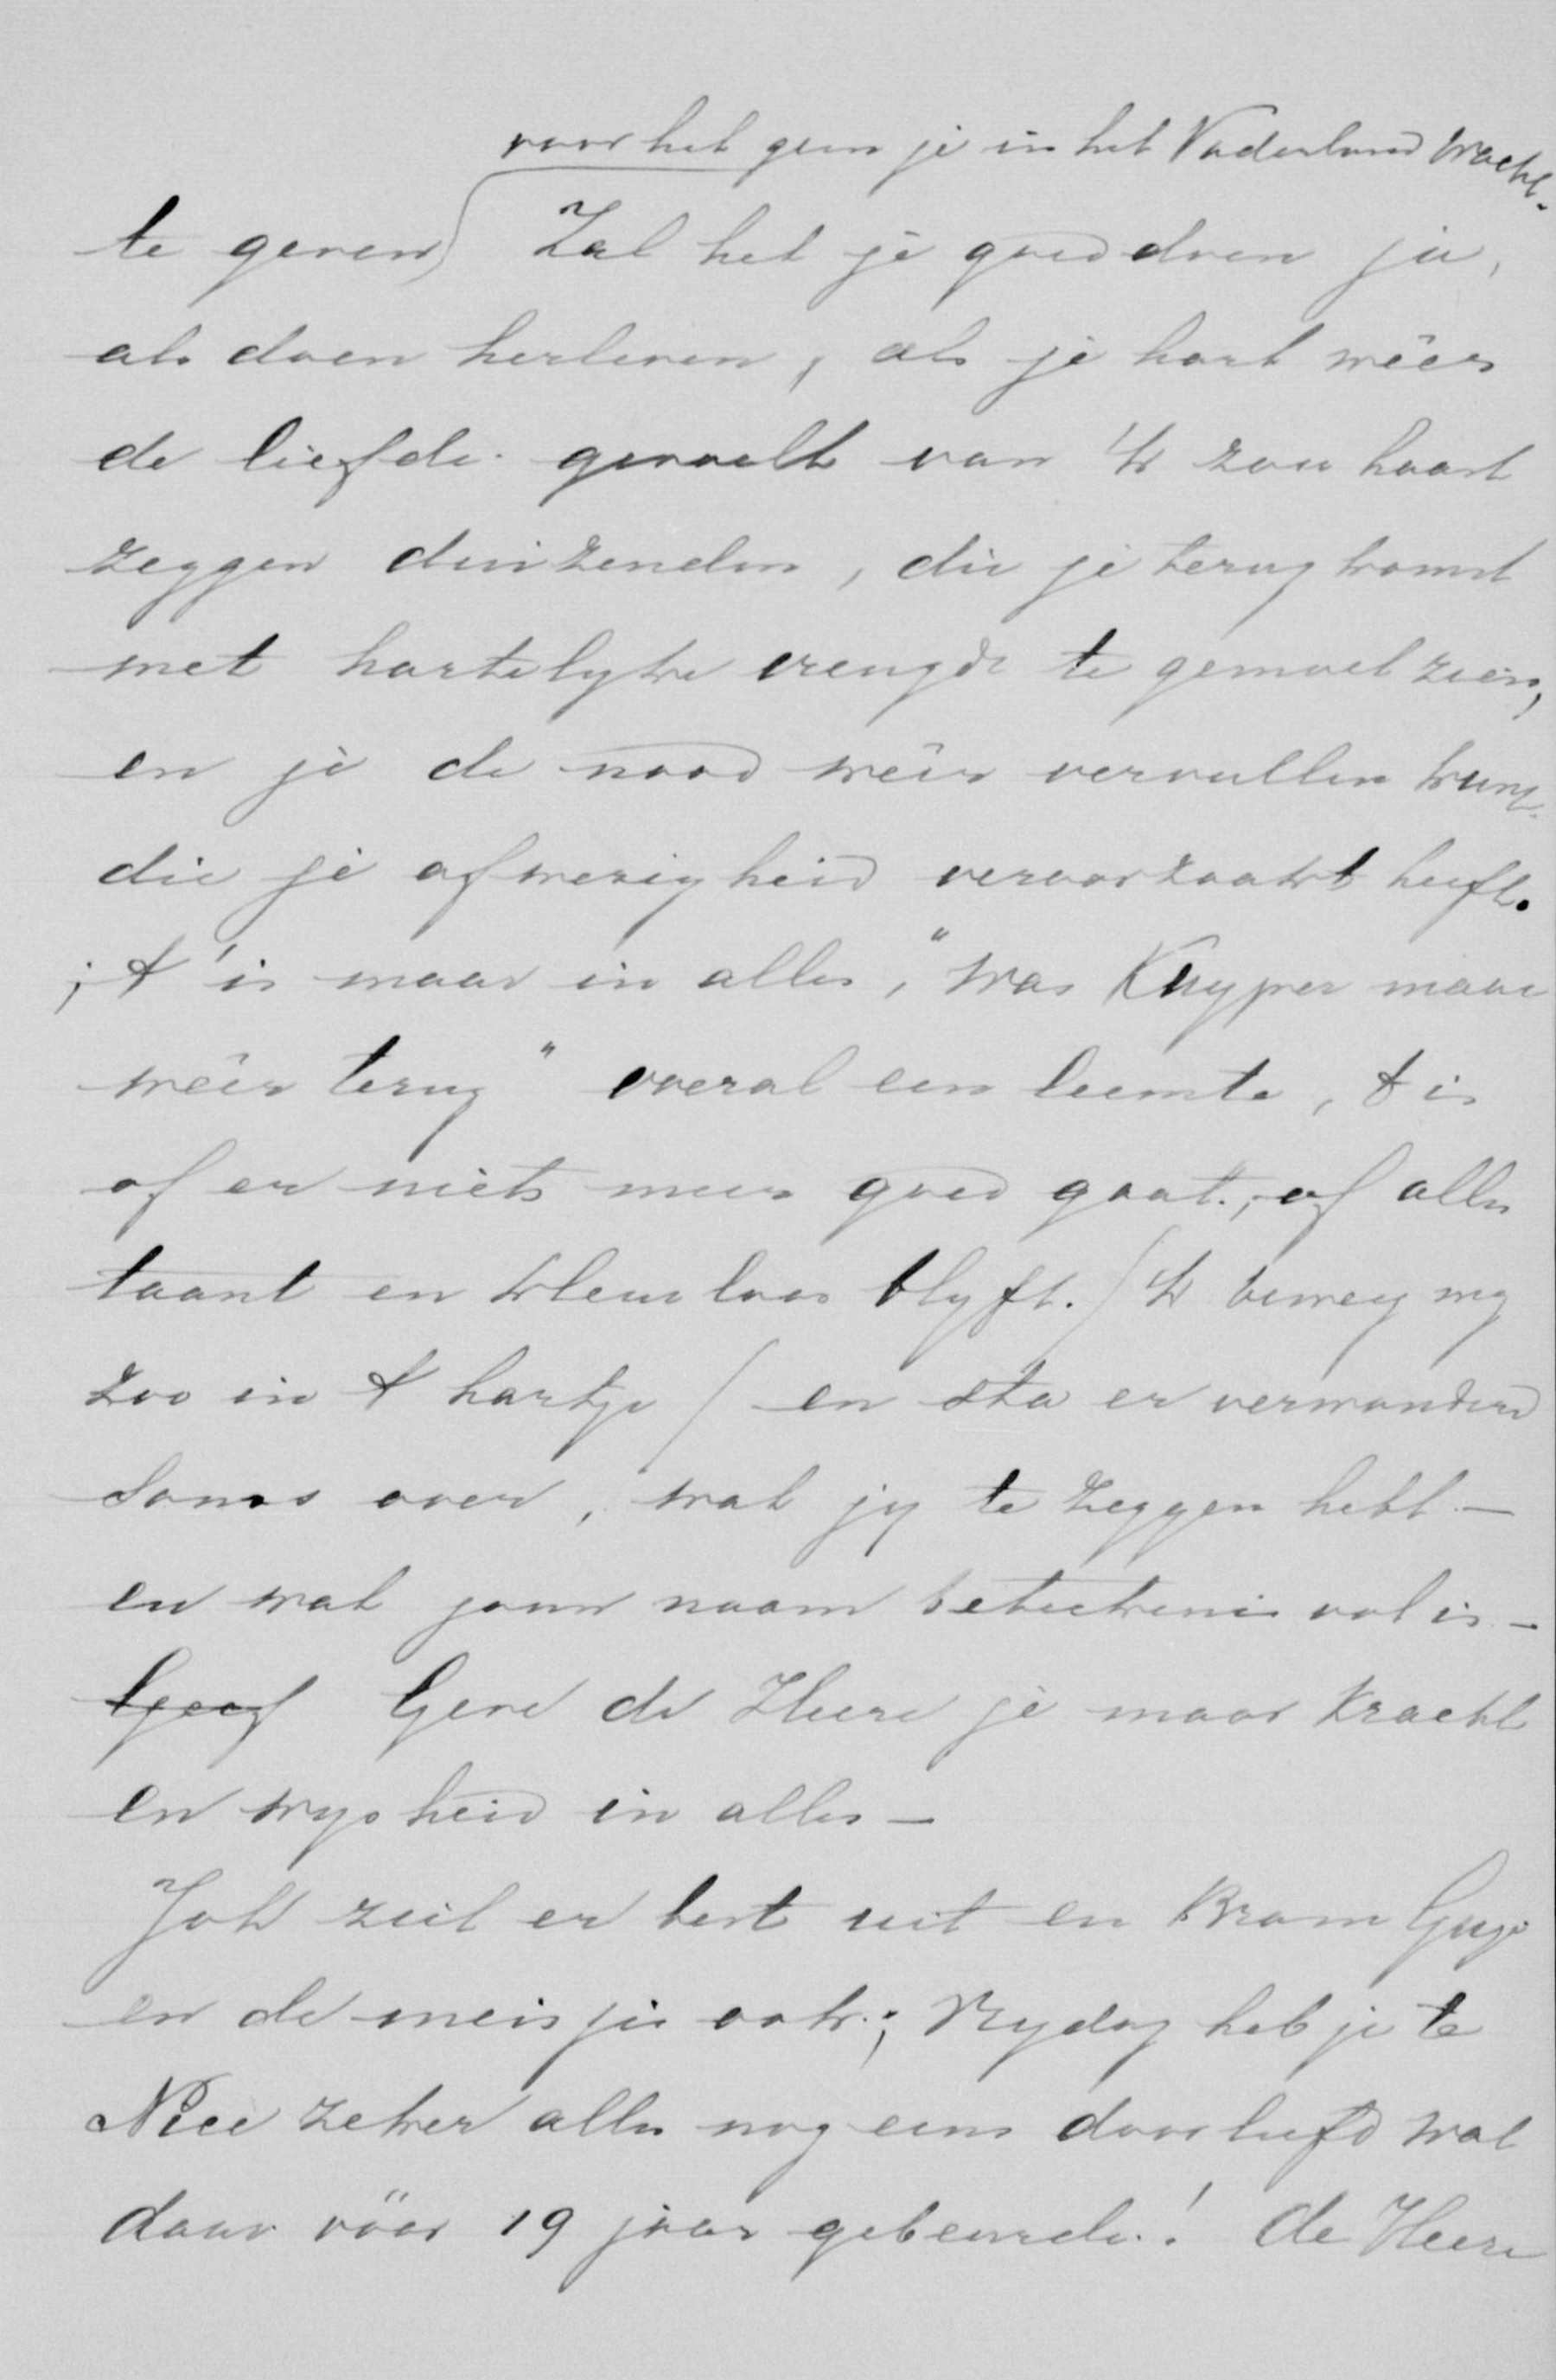 voor het geen je in het Vaderland wacht.
te geven) Zal het je goed doen ja,
als doen herleven, als je hart wêer
de liefde gevoelt van 'k zou haast
zeggen duizenden, die je terug komst
met hartelyke vreugde te gemoet zien,
en je de nood wêer vervullen kunt
die je afwezigheid veroorzaakt heeft.
; t' is maar in alles, "was Kuyper maar
wêer terug" overal een leemte, t is
of er niets meer goed gaat, of alles
taant en kleurloos blyft. / 'k beweeg my
zoo in t hartje / en sta er verwonderd
soms over, wat jy te zeggen hebt –
en wat jouw naam beteekenis vol is –
Geef Geve de Heere je maar kracht
en wysheid in alles –
Joh ziet er best uit en Bram Guje
en de meisjes ook; Vrydag heb je te
Nice zeker alles nog eens doorleefd wat
daar vóór 19 jaar gebeurde! de Heere